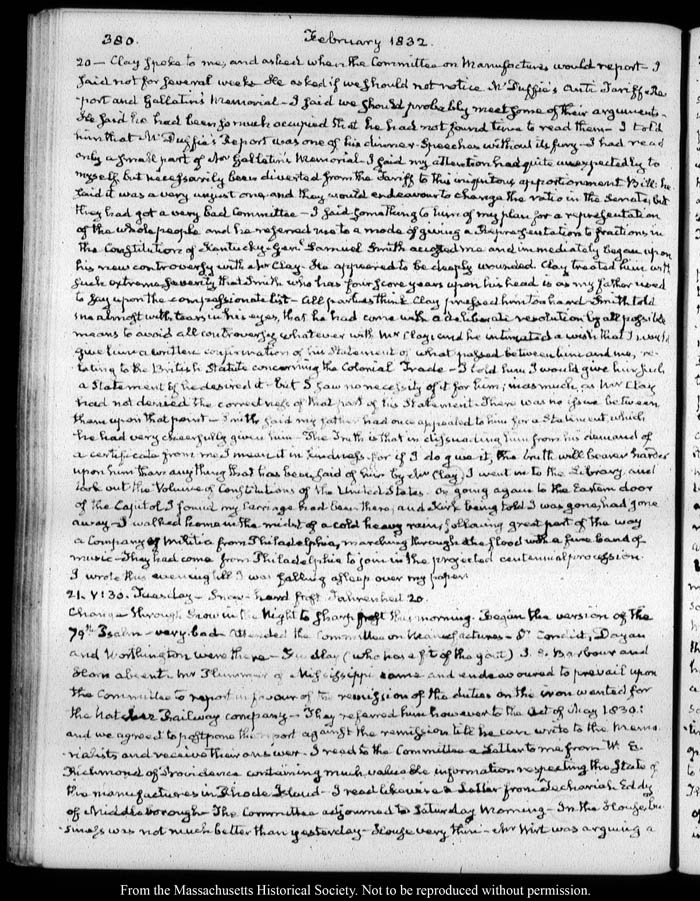 380.
February 1832.
20 — Clay spoke to me, and asked when the Committee on Manufactures would report — I
said not for several weeks. He asked if we should not notice Mr Duffie's Anti Tariff Re-
port and Gallatin's Memorial — I said we should probably meet some of their arguments.
He said he had been so much occupied that he had not found time to read them — I told
him that McDuffie's Report was one of his dinner-Speeches without its fury — I had read
only a small part of Mr Gallatin's Memorial — I said my attention had quite unexpectedly to
myself but necessarily been diverted from the Tariff to this iniquitous apportionment Bill: he
said it was a very unjust one, and they would endeavour to change the ratio in the Senate, but
they had got a very bad Committee — I said something to him of my plan for a representation
of the whole people and he referred me to a mode of giving a Representation to fractions in
the Constitution of Kentucky — Genl. Samuel Smith accosted me and immediately began upon
his new controversy with Mr Clay. He appeared to be deeply wounded. Clay treated him with
such extreme severity that Smith who has four score years upon his head is as my father used
to say upon the compassionate list — All parties think Clay pressed him too hard — Smith told
me almost with tears in his eyes, that he had come with a deliberate resolution by all possible
means to avoid all controversy whatever with Mr Clay; and he intimated a wish that I would
give him a written confirmation of his Statement of what passed between him and me, re-
lating to the British Statute concerning the Colonial Trade — I told him I would give him such
a Statement if he desired it — but I saw no necessity of it for him, inasmuch as Mr Clay
had not denied the correctness of that part of his Statement. There was no issue between
them upon that point — Smith said my father had once appealed to him for a Statement, which
he had very cheerfully given him — The Truth is that in dissuading him from his demand of
a certificate from me I mean it in kindness — for if I do give it, the truth will bear harder
upon him than any thing that has been said of him by Mr Clay. I went in to the Library, and
took out the Volume of Constitutions of the United States. On going again to the Eastern door
of the Capitol I found my Carriage had been there, and Kirk being told I was gone, had gone
away — I walked home in the midst of a cold heavy rain, following great part of the way
a Company of Militia from Philadelphia, marching through the flood with a fine band of
music — They had come from Philadelphia to join in the projected centennial procession.
I wrote this evening till I was falling asleep over my paper.
21. V:30. Tuesday — Snow — hard frost Fahrenheit 20.
Change through Snow in the Night to sharp frost this morning. Began the version of the
79th Psalm — very bad — Attended the Committee on Manufactures — Dr Condict, Dayan
and Worthington were there — Findlay (who has a fit of the gout) J. S. Barbour and
Horn absent. Mr Plummer of Mississippi came and endeavoured to prevail upon
the Committee to report in favour of the remission of the duties on the iron wanted for
the Natchez Railway company — They referred him however to the Act of May 1830:
and we agreed to postpone the report against the remission till he can write to the memo-
rialists and receive their answer. I read to the Committee a Letter to me from W. E.
Richmond of Providence containing much valuable information respecting the State of
the manufactures in Rhode Island — I read likewise a Letter from Zechariah Eddy
of Middleborough — The Committee adjourned to Saturday Morning — In the House, bu-
siness was not much better than yesterday — House very thin — Mr Wirt was arguing a
From the Massachusetts Historical Society. Not to be reproduced without permission.